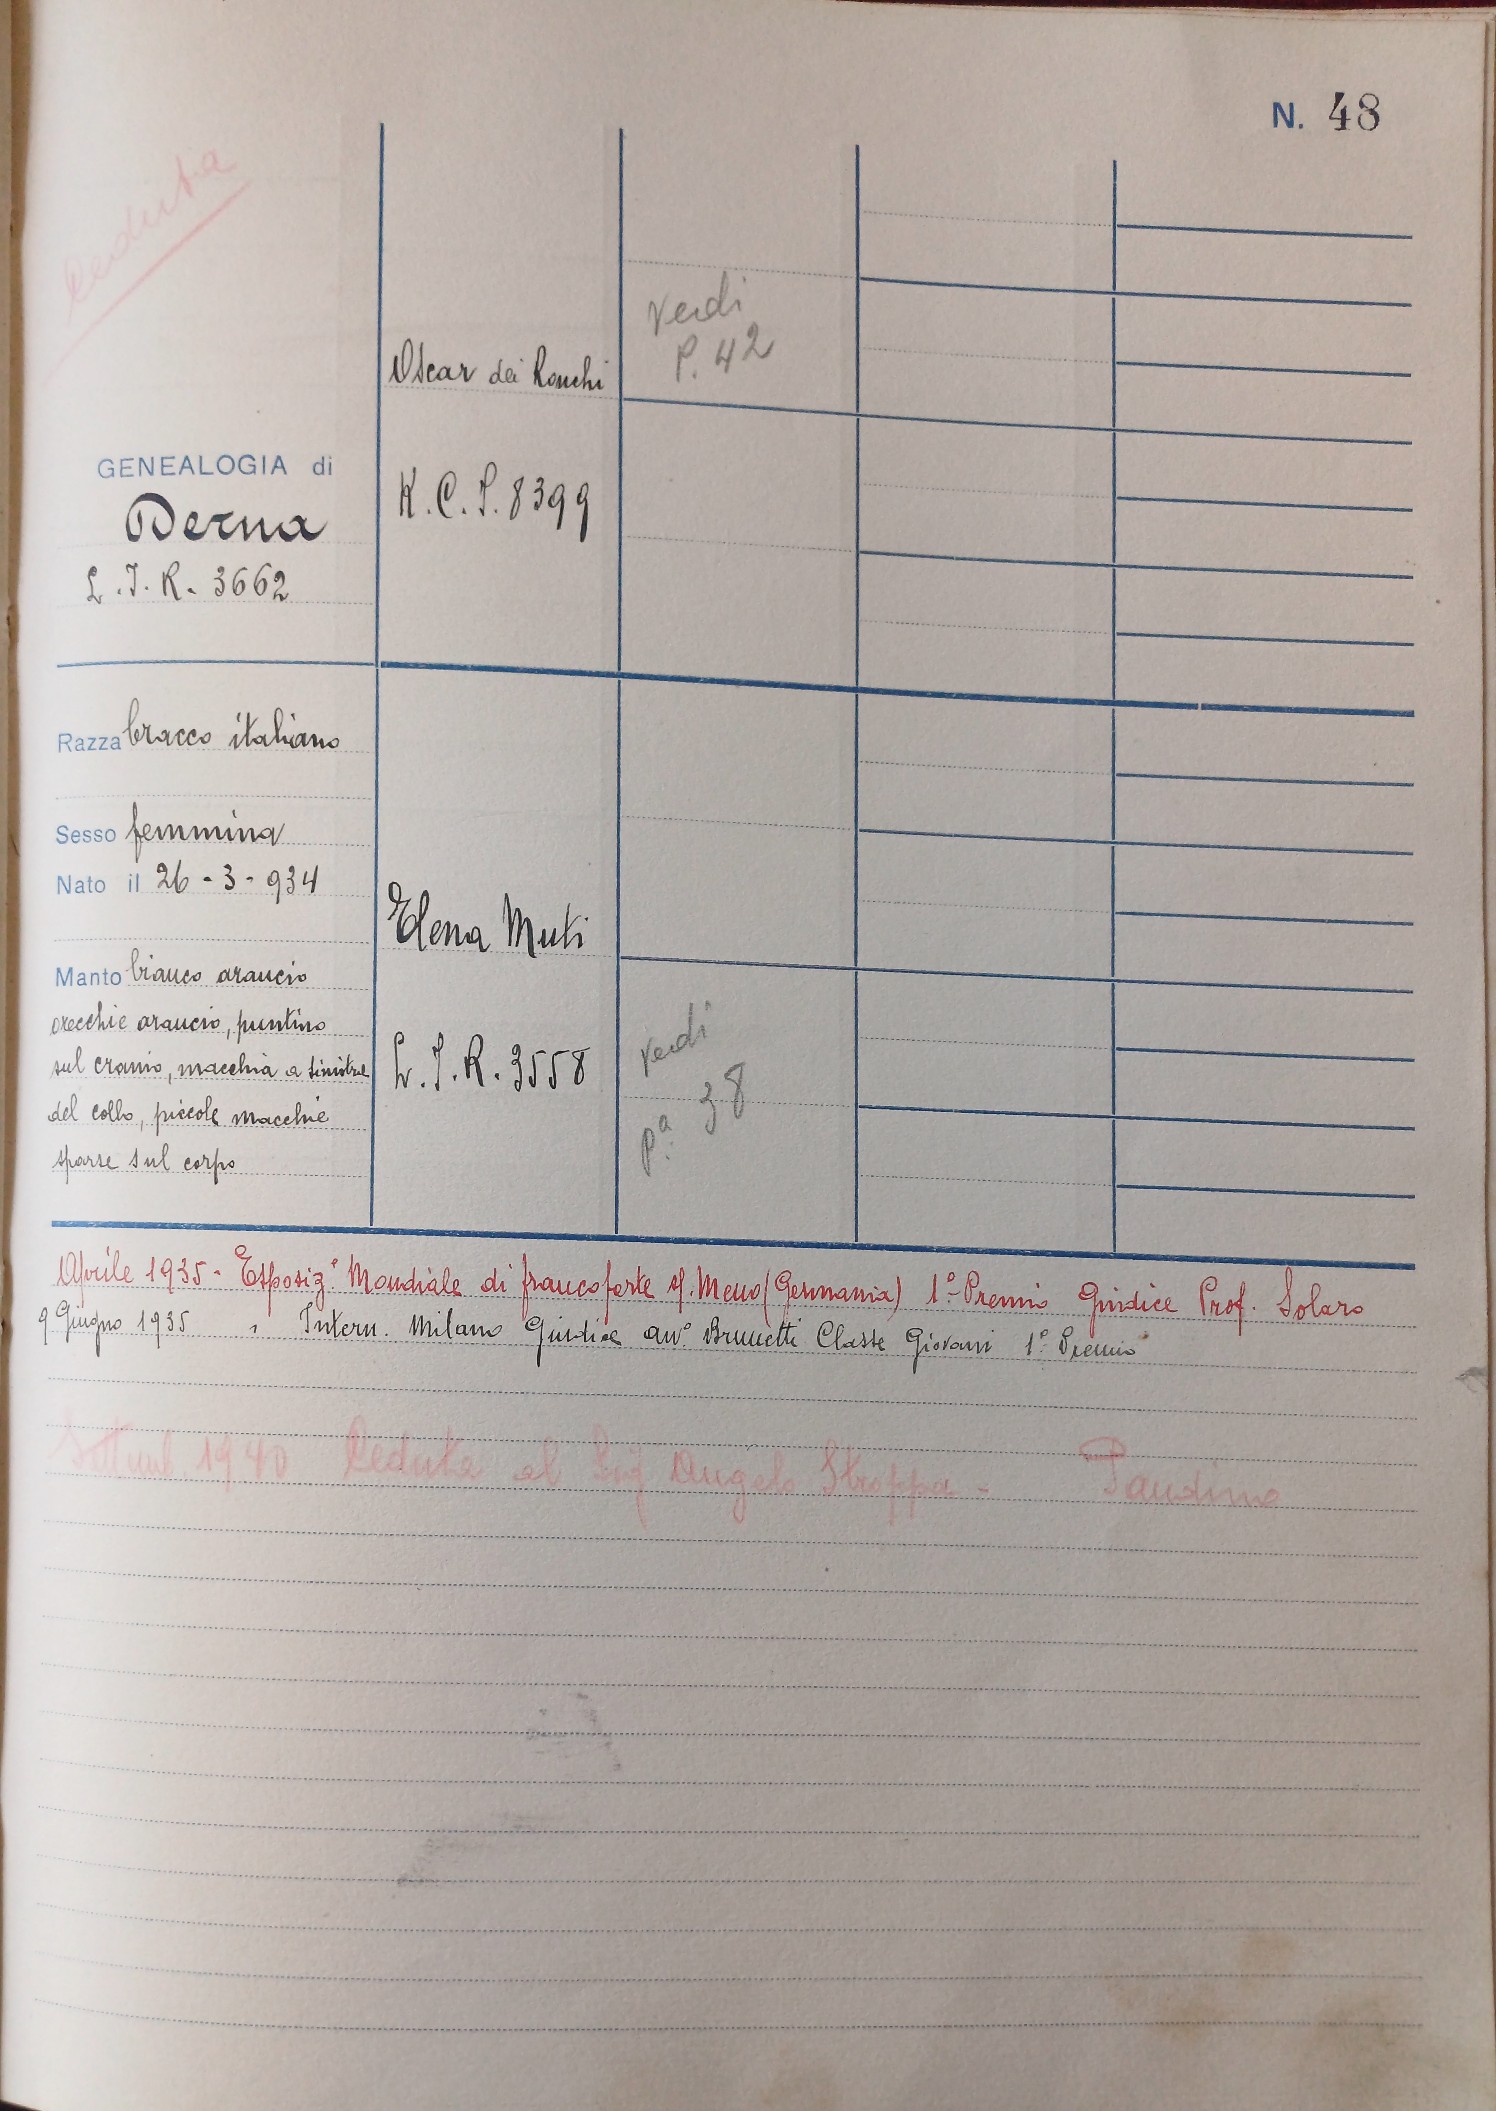 N. 48
Ceduta
GENEALOGIA di
Derna
L.I.R. 3662
Razza bracco italiano
Sesso femmina
Nato il 26-3-934
Manto bianco arancio
orecchie arancio, puntino
sul cranio, macchia a sinistra
del collo, piccole macchie
sparse sul corpo
Oscar dei Ronchi
K.C.I. 8399
Verdi
P. 42
Elena Muti
L.I.R. 3558
Verdi
Pª. 38
Aprile 1935 - Esposiz.e Mondiale di Francoforte s/. Meno (Germania) 1º Premio Giudice Prof. Solaro
9 Giugno 1935 " Intern. Milano Giudice avvº Brunetti Classe Giovani 1º Premio
Settemb. 1940 Ceduta al Sig Angelo Stroppa - Pandino